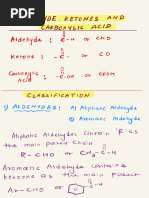 YDE, KETONES AND
CARBOXYLIC ACID
Aldehyde : O
-C-H or CHO
Ketone : O
-C- or CO
O
-C-OH or COOH
CLASSIFICATION
1) ALDEHYDES: A) Aliphatic Aldehyde
B) Aromatic Aldehyde
Aliphatic Aldehydes contain "R" as
the main parent chain.
R-CHO or CH3-C-H
O
Aromatic Aldehyde contains
become as this main parent
Ar-CHO or